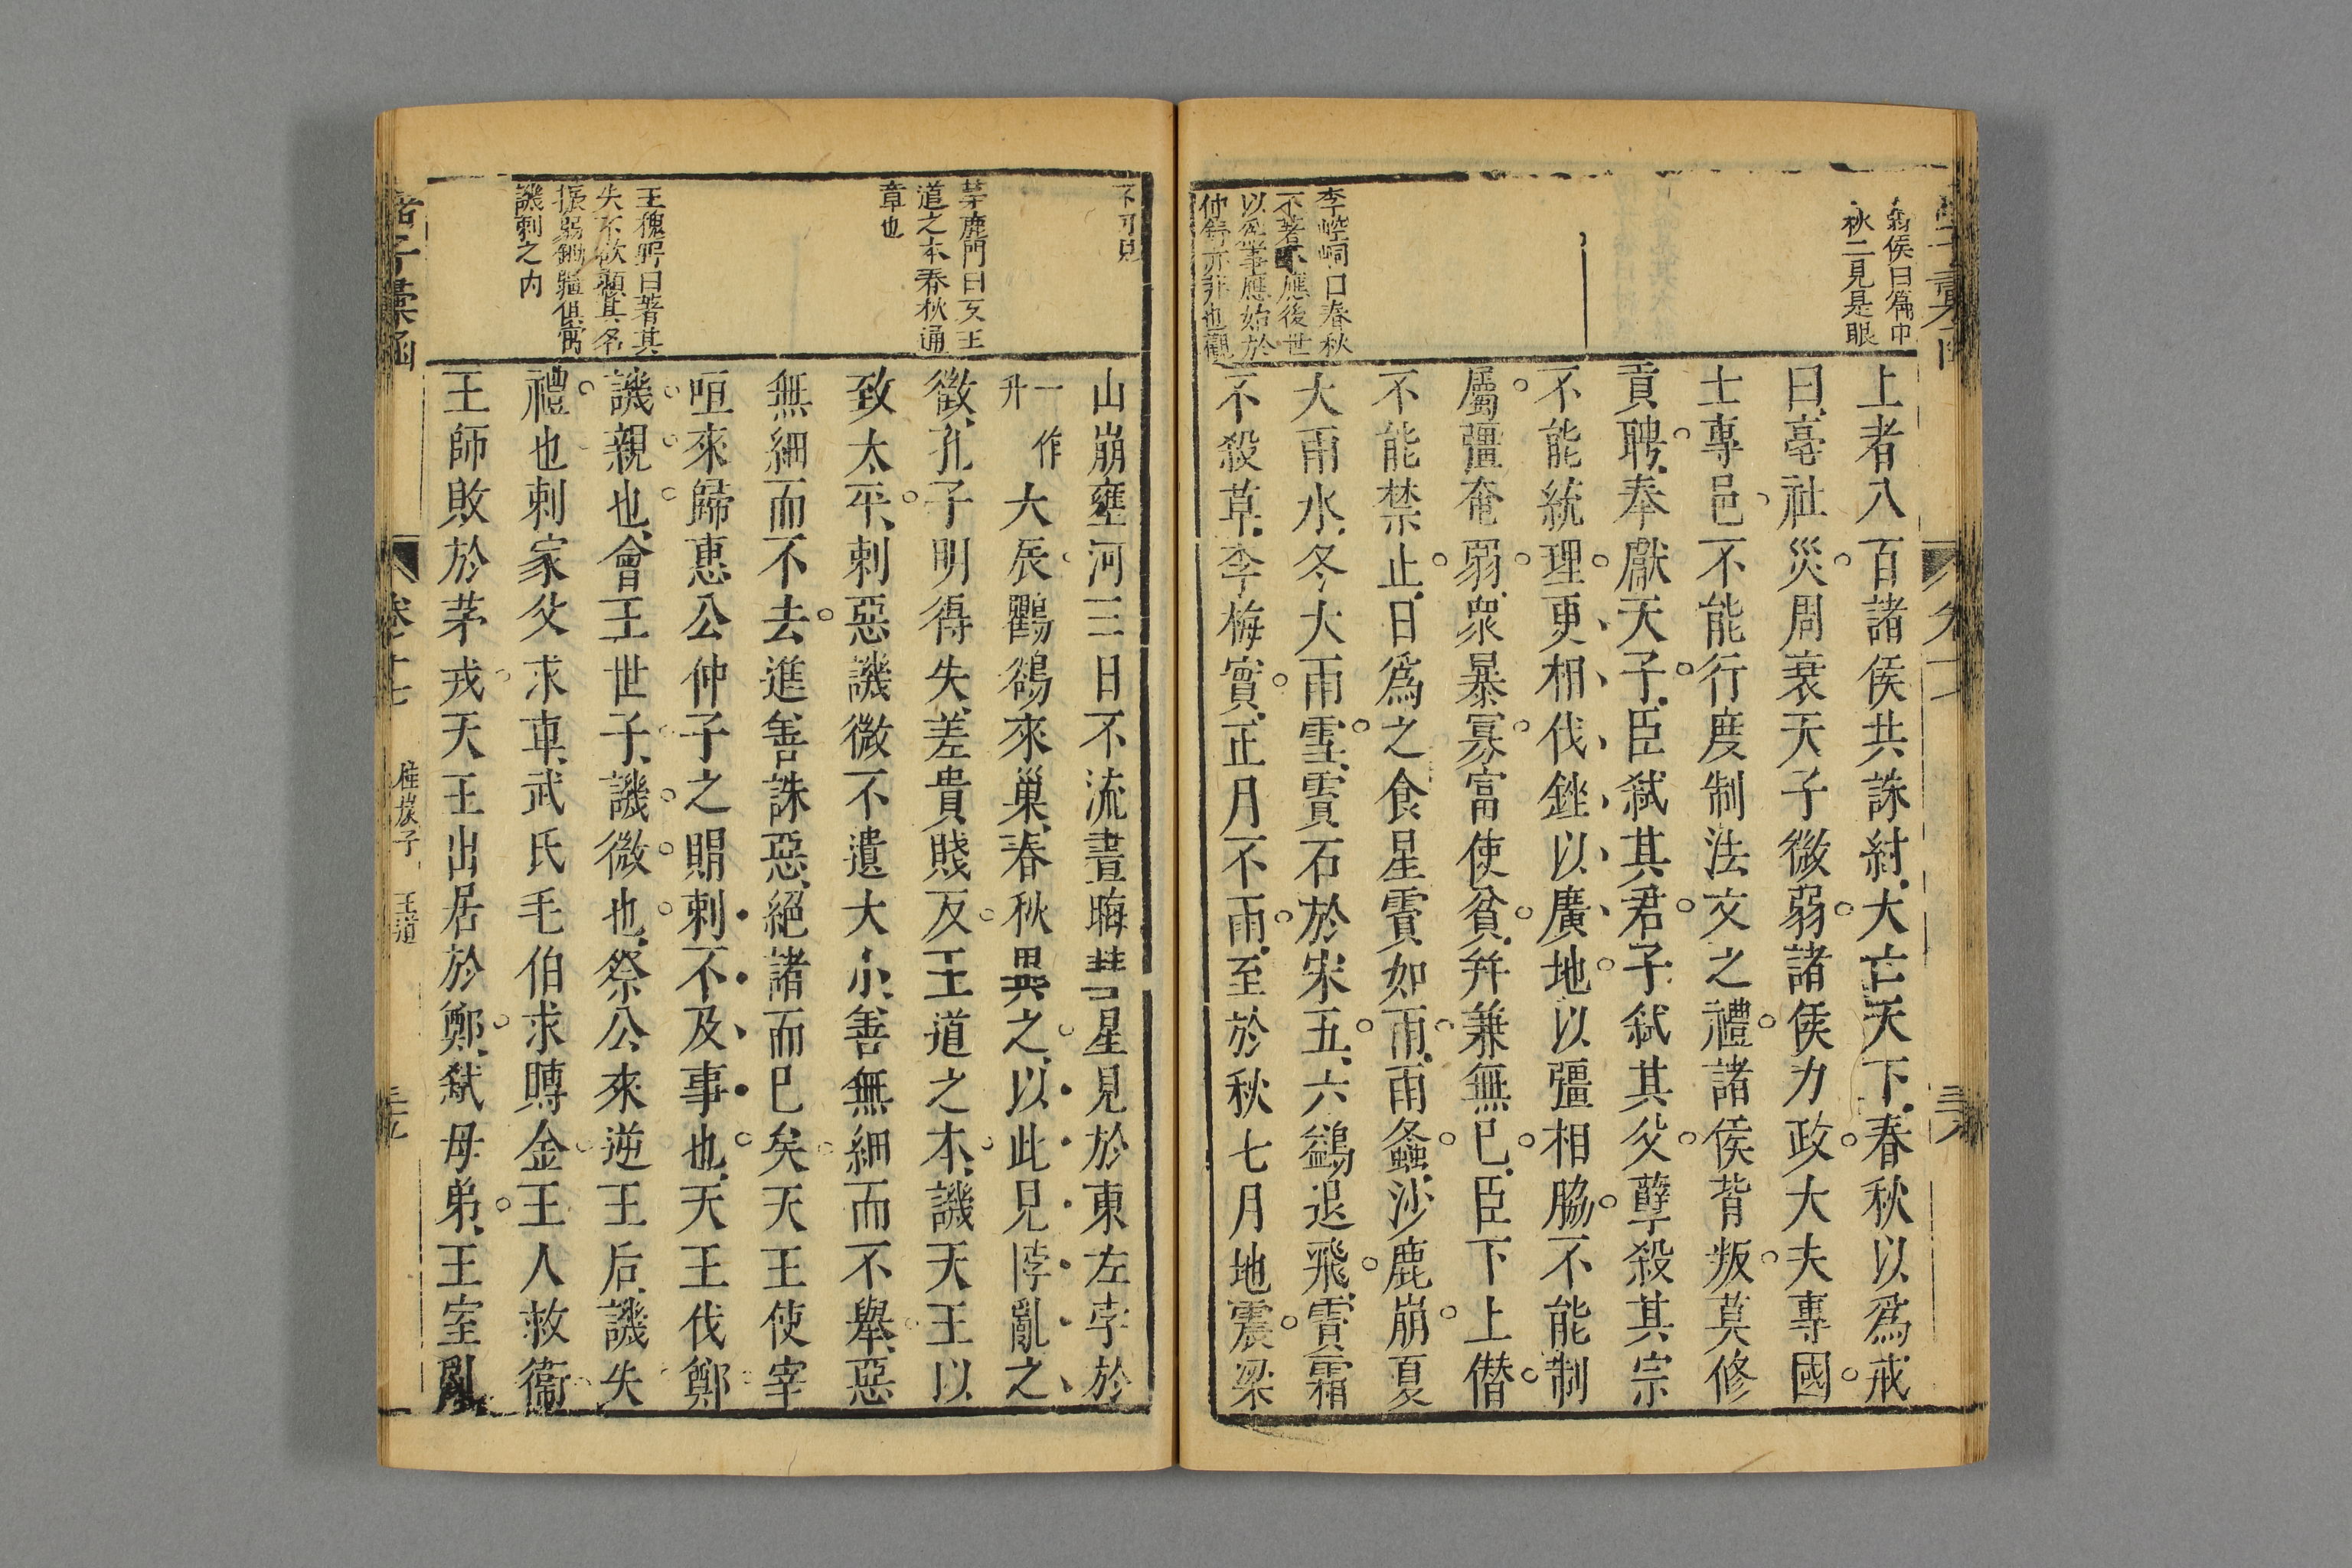 弱侯曰篇中
秋二見是眼
上者八百諸侯共誅紂大亡天下春秋以爲戒
曰亳社災周衰天子微弱諸侯力政大夫專國
士專邑不能行度制法文之禮諸侯背叛莫修
貢聘奉獻天子臣弑其君子弑其父孽殺其宗
不能統理更相伐銼以廣地以彊相脇不能制
屬彊奄弱衆暴寡富使貧幷兼無已臣下上僣
不能禁止日爲之食星霣如雨雨螽沙鹿崩夏
大雨水冬大雨雪霣石於宋五六鷁退飛霣霜
不殺草李梅實正月不雨至於秋七月地震梁
李崆峒曰春秋
不著不應後世
以爲事應始於
仲舒亦非也觀
不可見
山崩壅河三日不流晝晦彗星見於東左孛於
一作升大辰鸛鵒來巢春秋異之以此見悖亂之
徵孔子明得失差貴賤反王道之本譏天王以
致太平刺惡譏微不遺大小善無細而不舉惡
無細而不去進善誅惡絕諸而已矣天王使宰
咺來歸惠公仲子之賵刺不及事也天王伐鄭
譏親也會王世子譏微也祭公來逆王后譏失
禮也刺家父求車武氏毛伯求賻金王人救衞
王師敗於茅戎天王出居於鄭弑母弟王室亂
茅鹿門曰反王
道之本春秋通
章也
王槐野曰著其
失不欲顯其名
振弱鋤彊俱寓
譏刺之内
諸子彙函
卷十七
桂巖子
王道
三十九